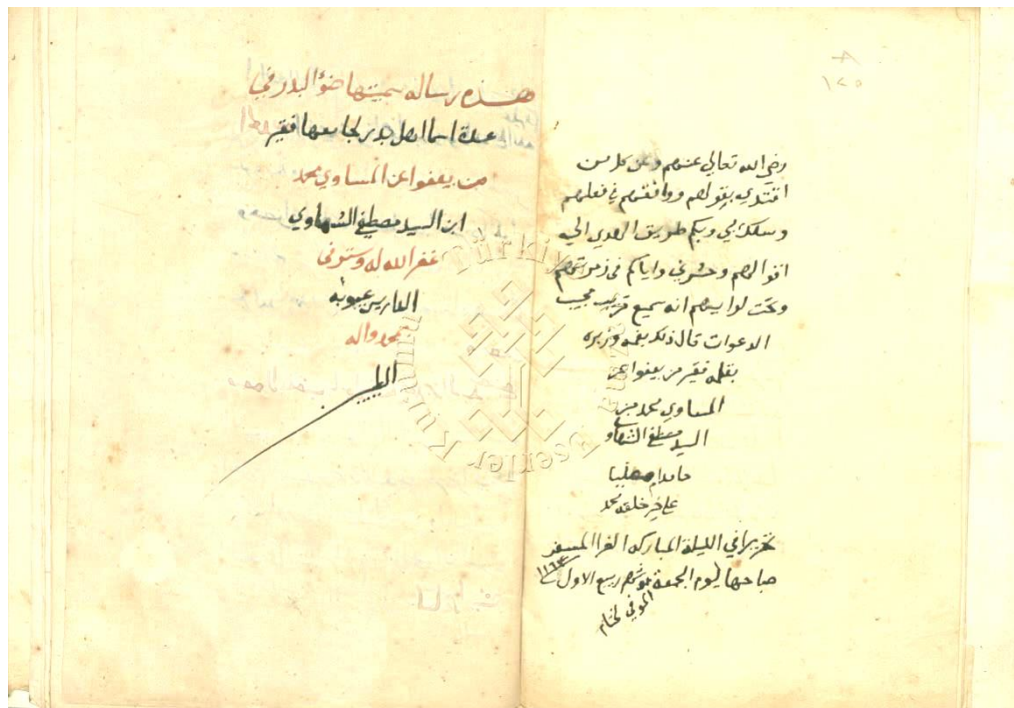 ١٢٥
رضي الله تعالى عنهم وعن كل من
اقتدي بقولهم ووافقهم في فعلهم
وسلك بي وبكم طريق الهدي الي
اقوالهم وحشرني واياكم في زمرتهم
وتحت لوايهم انه سميع قريب مجيب
الدعوات قال ذلك بفمه وزبره
بقلمه فقير من يعفوا عن
المساوي محمد بن
السيد مصطفى الشهاوي
حامدا مصليا
علي خير خلقه محمد
تحريرا في الليلة المباركه الغرا المسفر
صباحها ليوم الجمعة شهر ربيع الاول
١١٦٣
هذه رساله سميتها ضوء البدر في
عدة اسما اهل بدر لجامعها فقير
من يعفوا عن المساوي محمد
ابن السيد مصطفى الشهاوي
غفر الله له وستر في
الدارين عيوبه
بمحمد واله
Türkiye
Yazma Eserler Kurumu